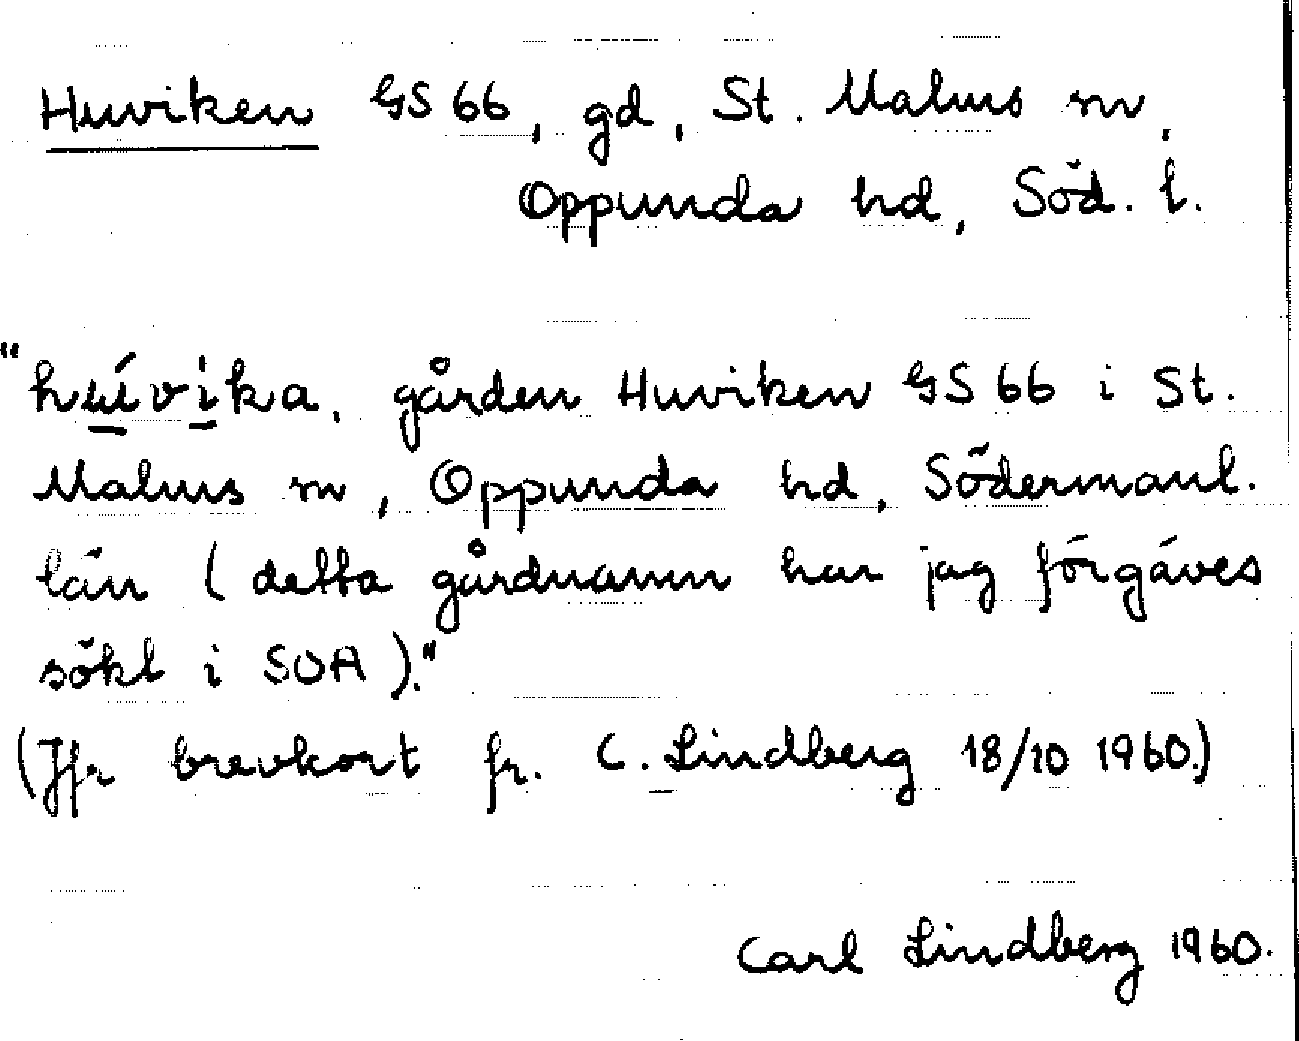 Huviken GS 66, gd, St. Malms sn,
Oppunda hd, Söd. l.
"hú̲vì̲ka, gården Huviken GS 66 i St.
Malms sn, Oppunda hd, Södermanl.
län (detta gårdnamn har jag förgäves
sökt i SOA)."
(Jfr brevkort fr. C. Lindberg 18/10 1960.)
Carl Lindberg 1960.